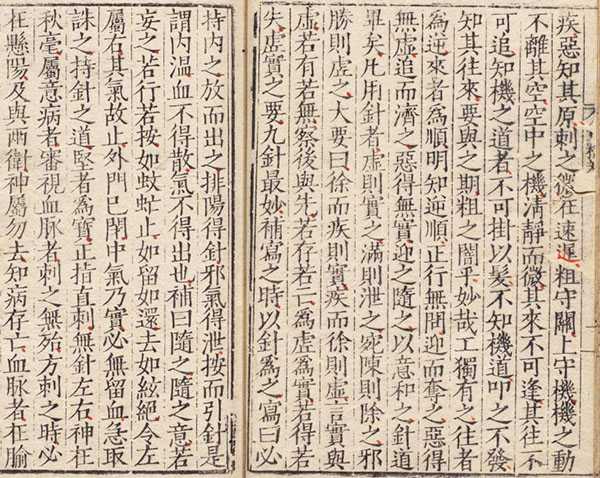 疾惡知其原刺之微在速遲粗守關上守機機之動
不離其空空中之機清靜而微其來不可逢其往不
可追知機之道者不可掛以髮不知機道叩之不發
知其往來要與之期粗之闇乎妙哉工獨有之往者
爲逆來者爲順明知逆順正行無問迎而奪之惡得
無虛追而濟之惡得無實迎之隨之以意和之針道
畢矣凡用針者虛則實之滿則泄之宛陳則除之邪
勝則虛之大要曰徐而疾則實疾而徐則虛言實與
虛若有若無察後與先若存若亡爲虛爲實若得若
失虛實之要九針最妙補寫之時以針爲之寫曰必
持內之放而出之排陽得針邪氣得泄按而引針是
謂內温血不得散氣不得出也補曰隨之隨之意若
妄之若行若按如蚊虻止如留如還去如絃絕令左
屬右其氣故止外門已閇中氣乃實必無留血急取
誅之持針之道堅者爲寶正指直刺無針左右神在
秋毫屬意病者審視血脉者刺之無殆方刺之時必
在懸陽及與兩衛神屬勿去知病存亡血脉者在腧